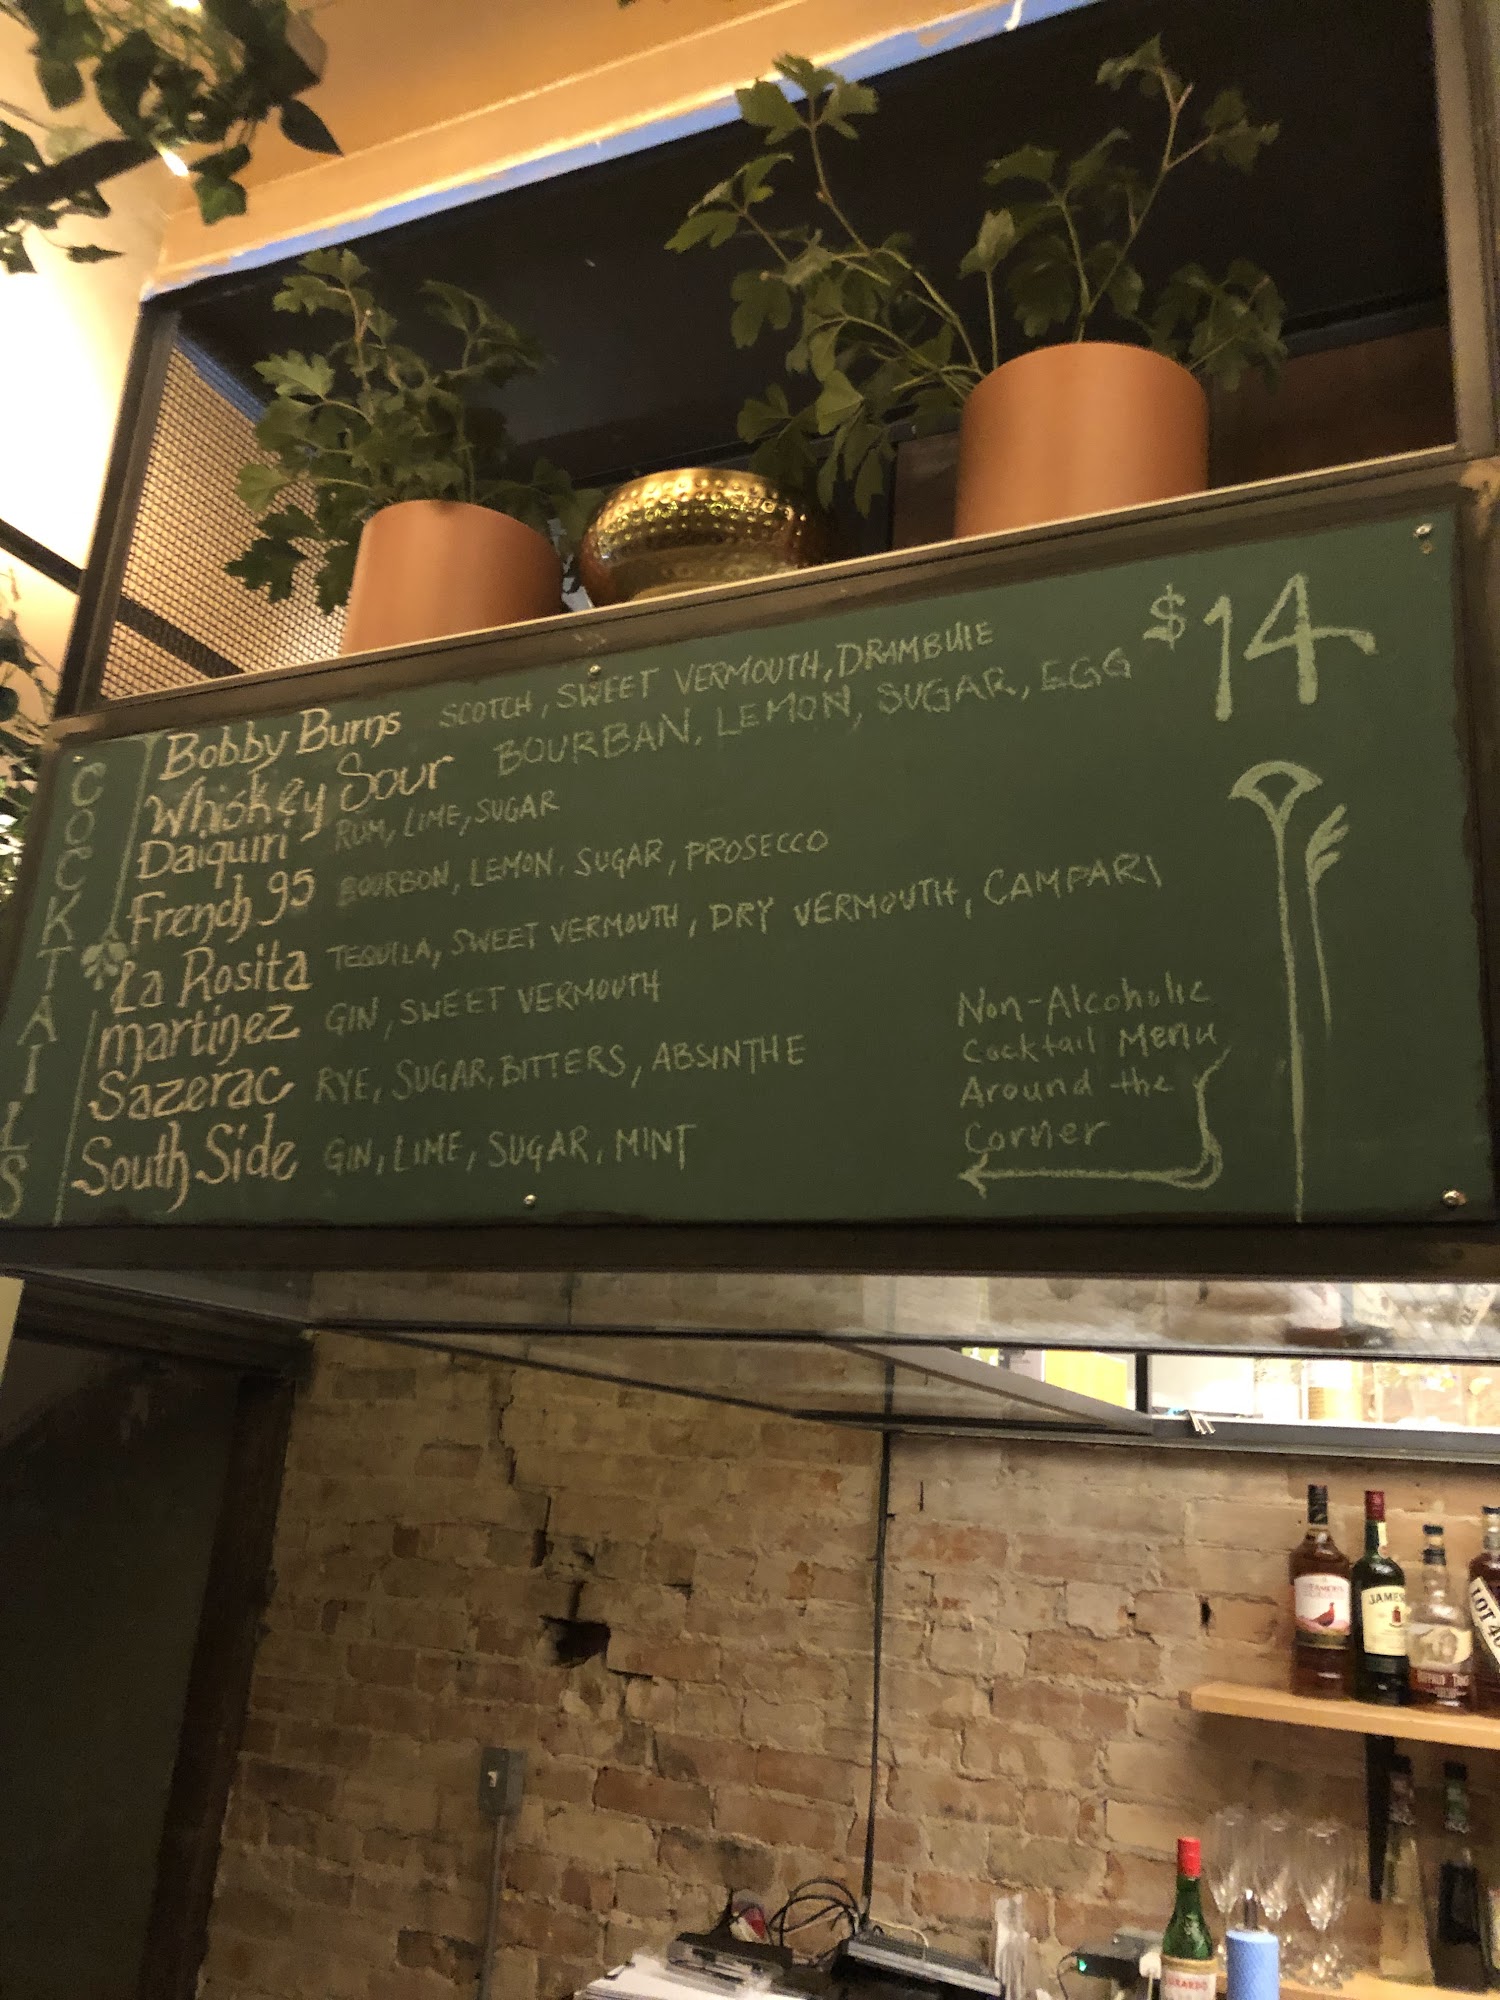 COCKTAILS
$14
Bobby Burns SCOTCH, SWEET VERMOUTH, DRAMBUIE
Whiskey Sour BOURBAN, LEMON, SUGAR, EGG
Daiquiri RUM, LIME, SUGAR
French 95 BOURBON, LEMON, SUGAR, PROSECCO
La Rosita TEQUILA, SWEET VERMOUTH, DRY VERMOUTH, CAMPARI
Martinez GIN, SWEET VERMOUTH
Sazerac RYE, SUGAR, BITTERS, ABSINTHE
South Side GIN, LIME, SUGAR, MINT
Non-Alcoholic
Cocktail Menu
Around the
Corner
JAMES
LOT 40